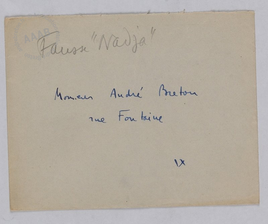 Fausse "Nadja"
Monsieur André Breton
rue Fontaine
IX